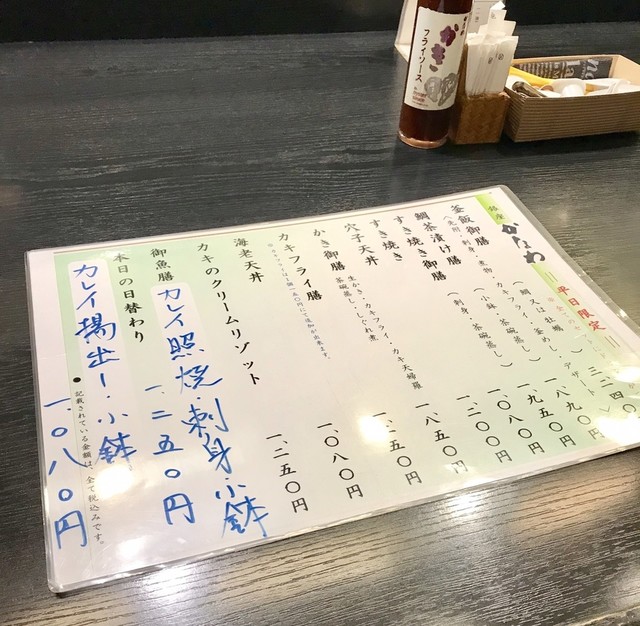 かき
フライソース
銀座 かなわ
平日限定
釜飯御膳
鯛茶漬け膳
(刺身・茶碗蒸し)
すき焼き御膳
(小鉢・茶碗蒸し)
すき焼き
穴子天丼
かき御膳
生かき・カキフライ・カキ天婦羅
茶碗蒸し・しぐれ煮
カキフライ膳
海老天丼
カキのクリームリゾット
御魚膳
カレイ照焼・刺身・小鉢
一、二五〇円
本日の日替わり
カレイ揚出し・小鉢
一、〇八〇円
●記載されている金額は、全て税込みです。
一、八九〇円
一、九五〇円
一、二〇〇円
一、八五〇円
一、二五〇円
一、〇八〇円
一、二五〇円